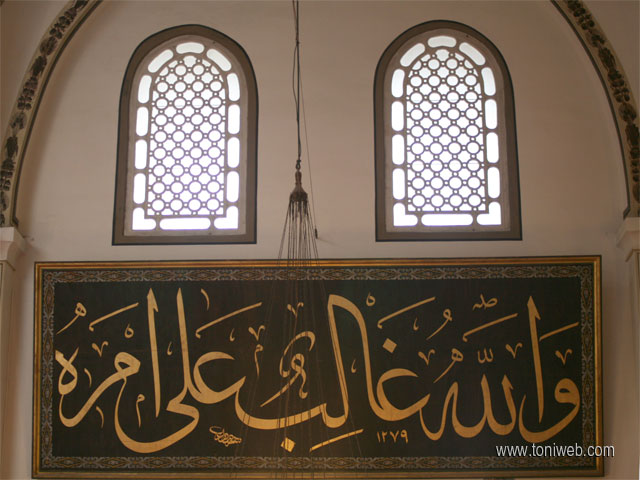 والله غالب على امره
١٢٧٩
www.toniweb.com